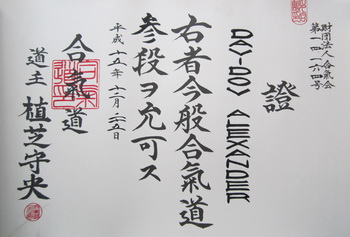 財団法人合氣会
第一四一六四号
證
DAVIDOV ALEXANDER
右者今般合氣道
参段ヲ允可ス
平成十五年十二月二五日
合氣道
道主 植芝守央